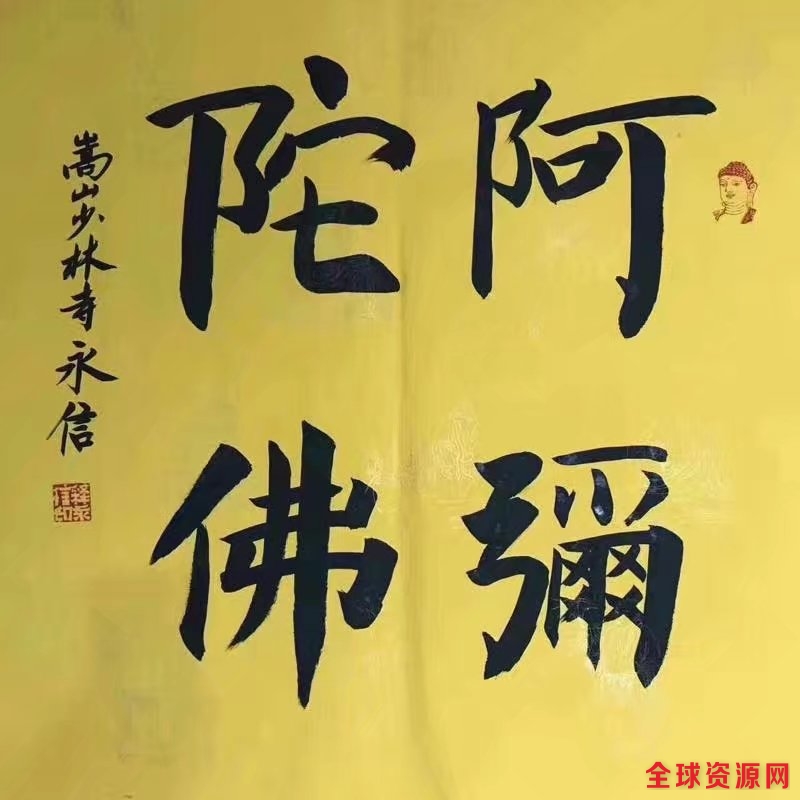 阿彌
陀佛
嵩山少林寺永信
釋永信印
全球资源网